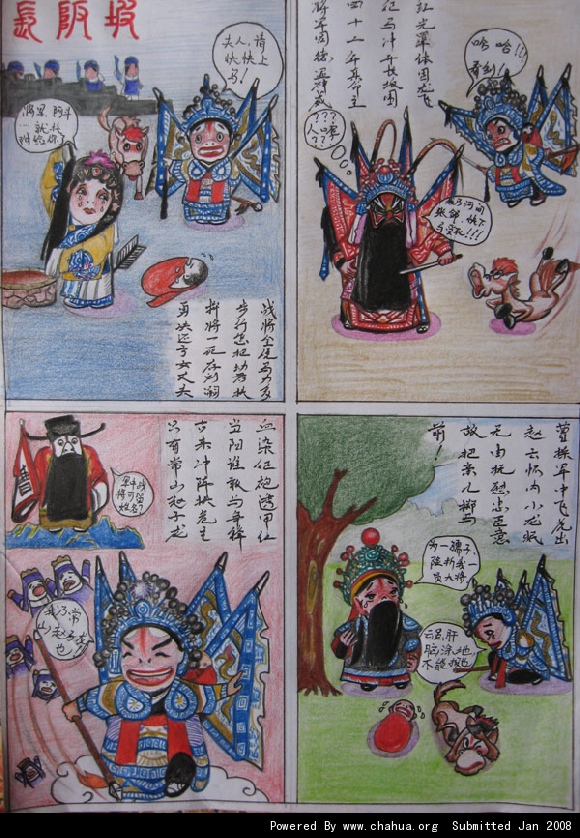 長阪坡
夫人,请上
快快
马!
战将全凭马力多
步行怎把幼君扶
拼将一死存刘嗣
勇决还亏女丈夫
红光罩体困龙飞
征马冲开长坂围
四十二年真命主
将军因得显神威
哈哈!!!
看剑!
???
人哩
???
吾乃河间
张郃,快下
马受死!!!
血染征袍透甲红
当阳谁敢与争锋
古来冲阵扶危主
只有常山赵子龙
军中战
将可留
姓名?
我乃常
山赵子龙
也!!
曹操军中飞虎出
赵云怀内小龙眠
无由抚慰忠臣意
故把亲儿掷马
前!
为一孺子,
险折我一
员大将
云虽肝
脑涂地,
不能报也
Powered By www.chahua.org Submitted Jan 2008